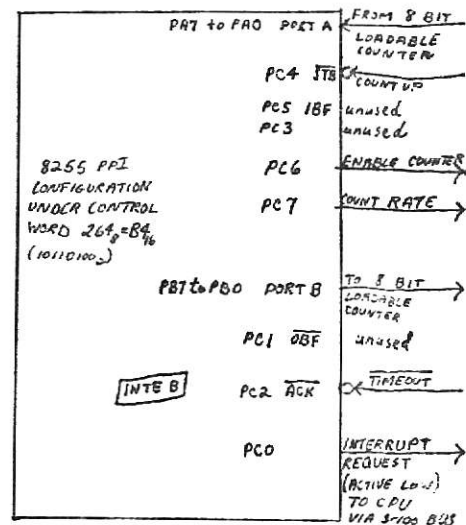 PA7 to PA0 PORT A
FROM 8 BIT
LOADABLE
COUNTER
PC4 STB
COUNT UP
PC5 IBF unused
PC3 unused
8255 PPI
CONFIGURATION
UNDER CONTROL
WORD 264₈=B4₁₆
(10110100₂)
PC6 ENABLE COUNTER
PC7 COUNT RATE
PB7 to PB0 PORT B
TO 8 BIT
LOADABLE
COUNTER
PC1 OBF unused
INTE B
PC2 ACK TIMEOUT
PC0
INTERRUPT
REQUEST
(ACTIVE LOW)
TO CPU
VIA S-100 BUS